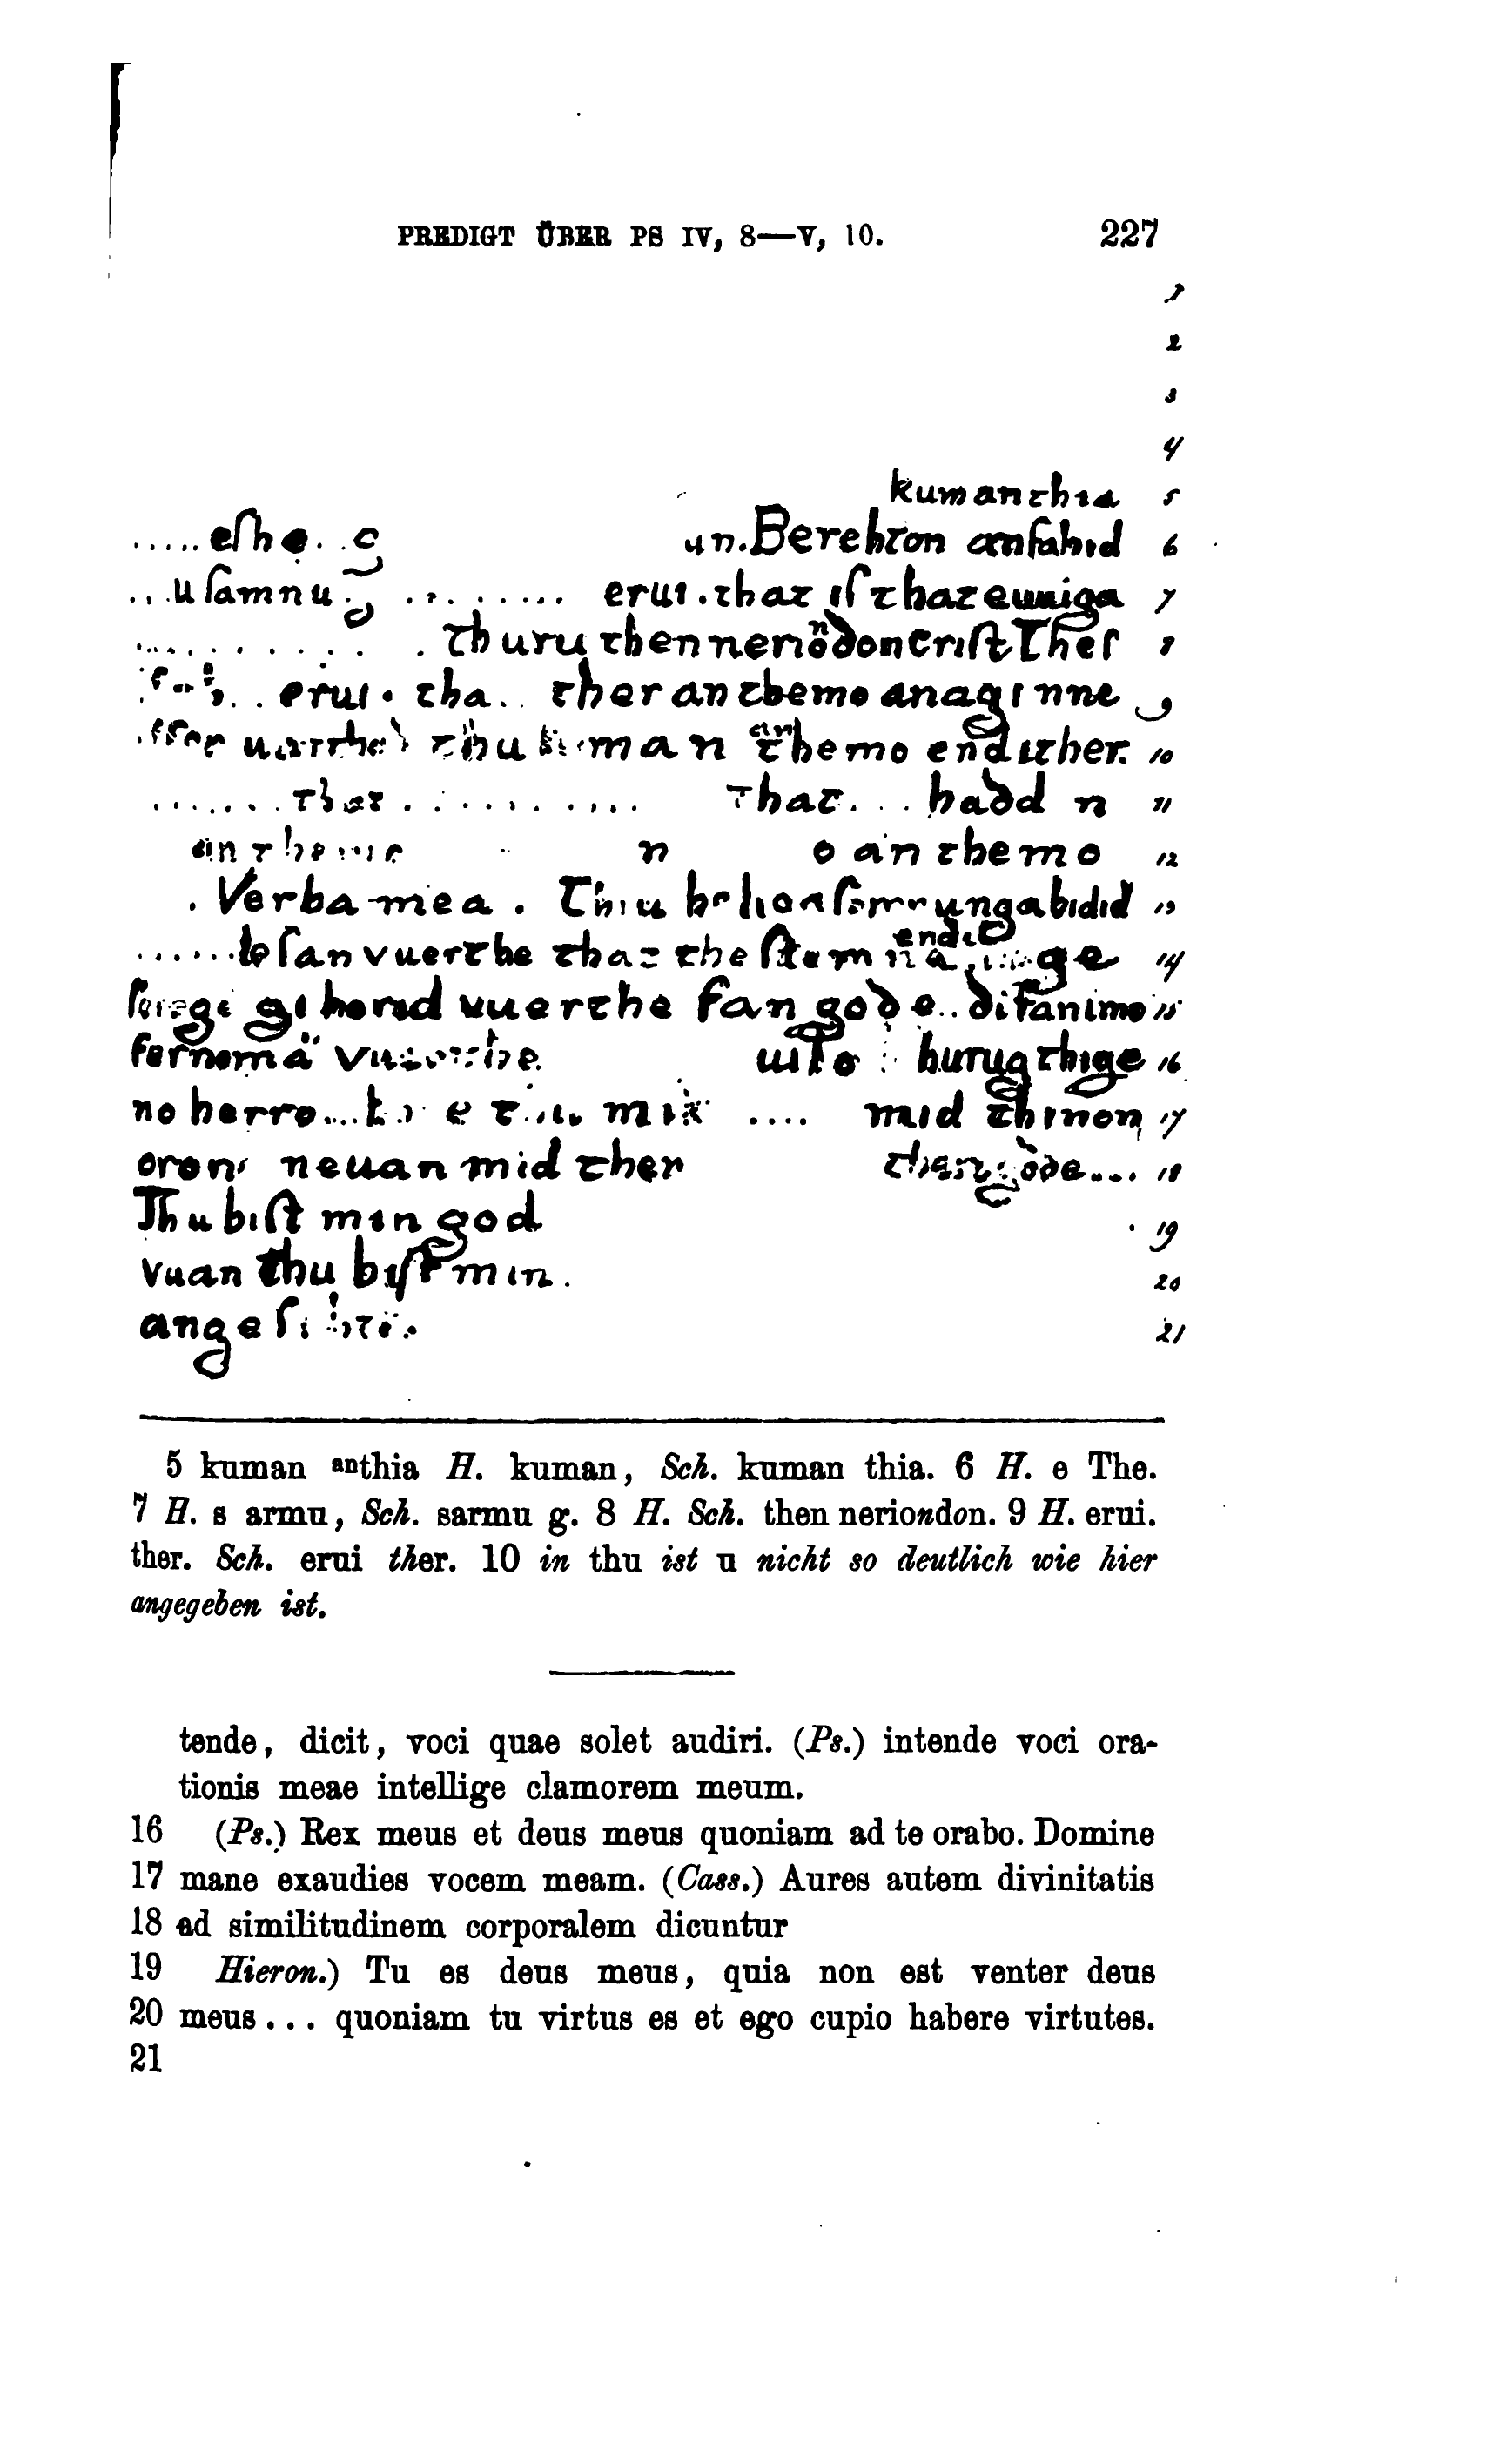 PREDIGT ÜBER PS IV, 8—V, 10. 227
1
2
3
4
kuman thia 5
.....eſhe. . g un. Berehton anfahid 6
...u ſamnu . g ......... erui . that iſ that euuiga 7
........... . thuru then neriondon Criſt Theſ 8
erui . tha.. ther an themo anaginne 9
thu man an themo endi ther. 10
....... That ... hadd n 11
n o an themo 12
. Verba mea . Thiu ungabidid 13
......leſan vuerthe that the ſtemna endi ge 14
gihorid vuerthe fan gode.. diſanimo 15
fernoma uuſo hurugthige 16
no herro .... mid thinon 17
oron neuan mid ther 18
Thu biſt min god 19
vuan thu biſt min. 20
angeſi 21
5 kuman anthia H. kuman, Sch. kuman thia. 6 H. e The.
7 H. s armu, Sch. sarmu g. 8 H. Sch. then neriondon. 9 H. erui.
ther. Sch. erui ther. 10 in thu ist u nicht so deutlich wie hier
angegeben ist.
tende, dicit, voci quae solet audiri. (Ps.) intende voci ora-
tionis meae intellige clamorem meum.
16 (Ps.) Rex meus et deus meus quoniam ad te orabo. Domine
17 mane exaudies vocem meam. (Cass.) Aures autem divinitatis
18 ad similitudinem corporalem dicuntur
19 Hieron.) Tu es deus meus, quia non est venter deus
20 meus... quoniam tu virtus es et ego cupio habere virtutes.
21